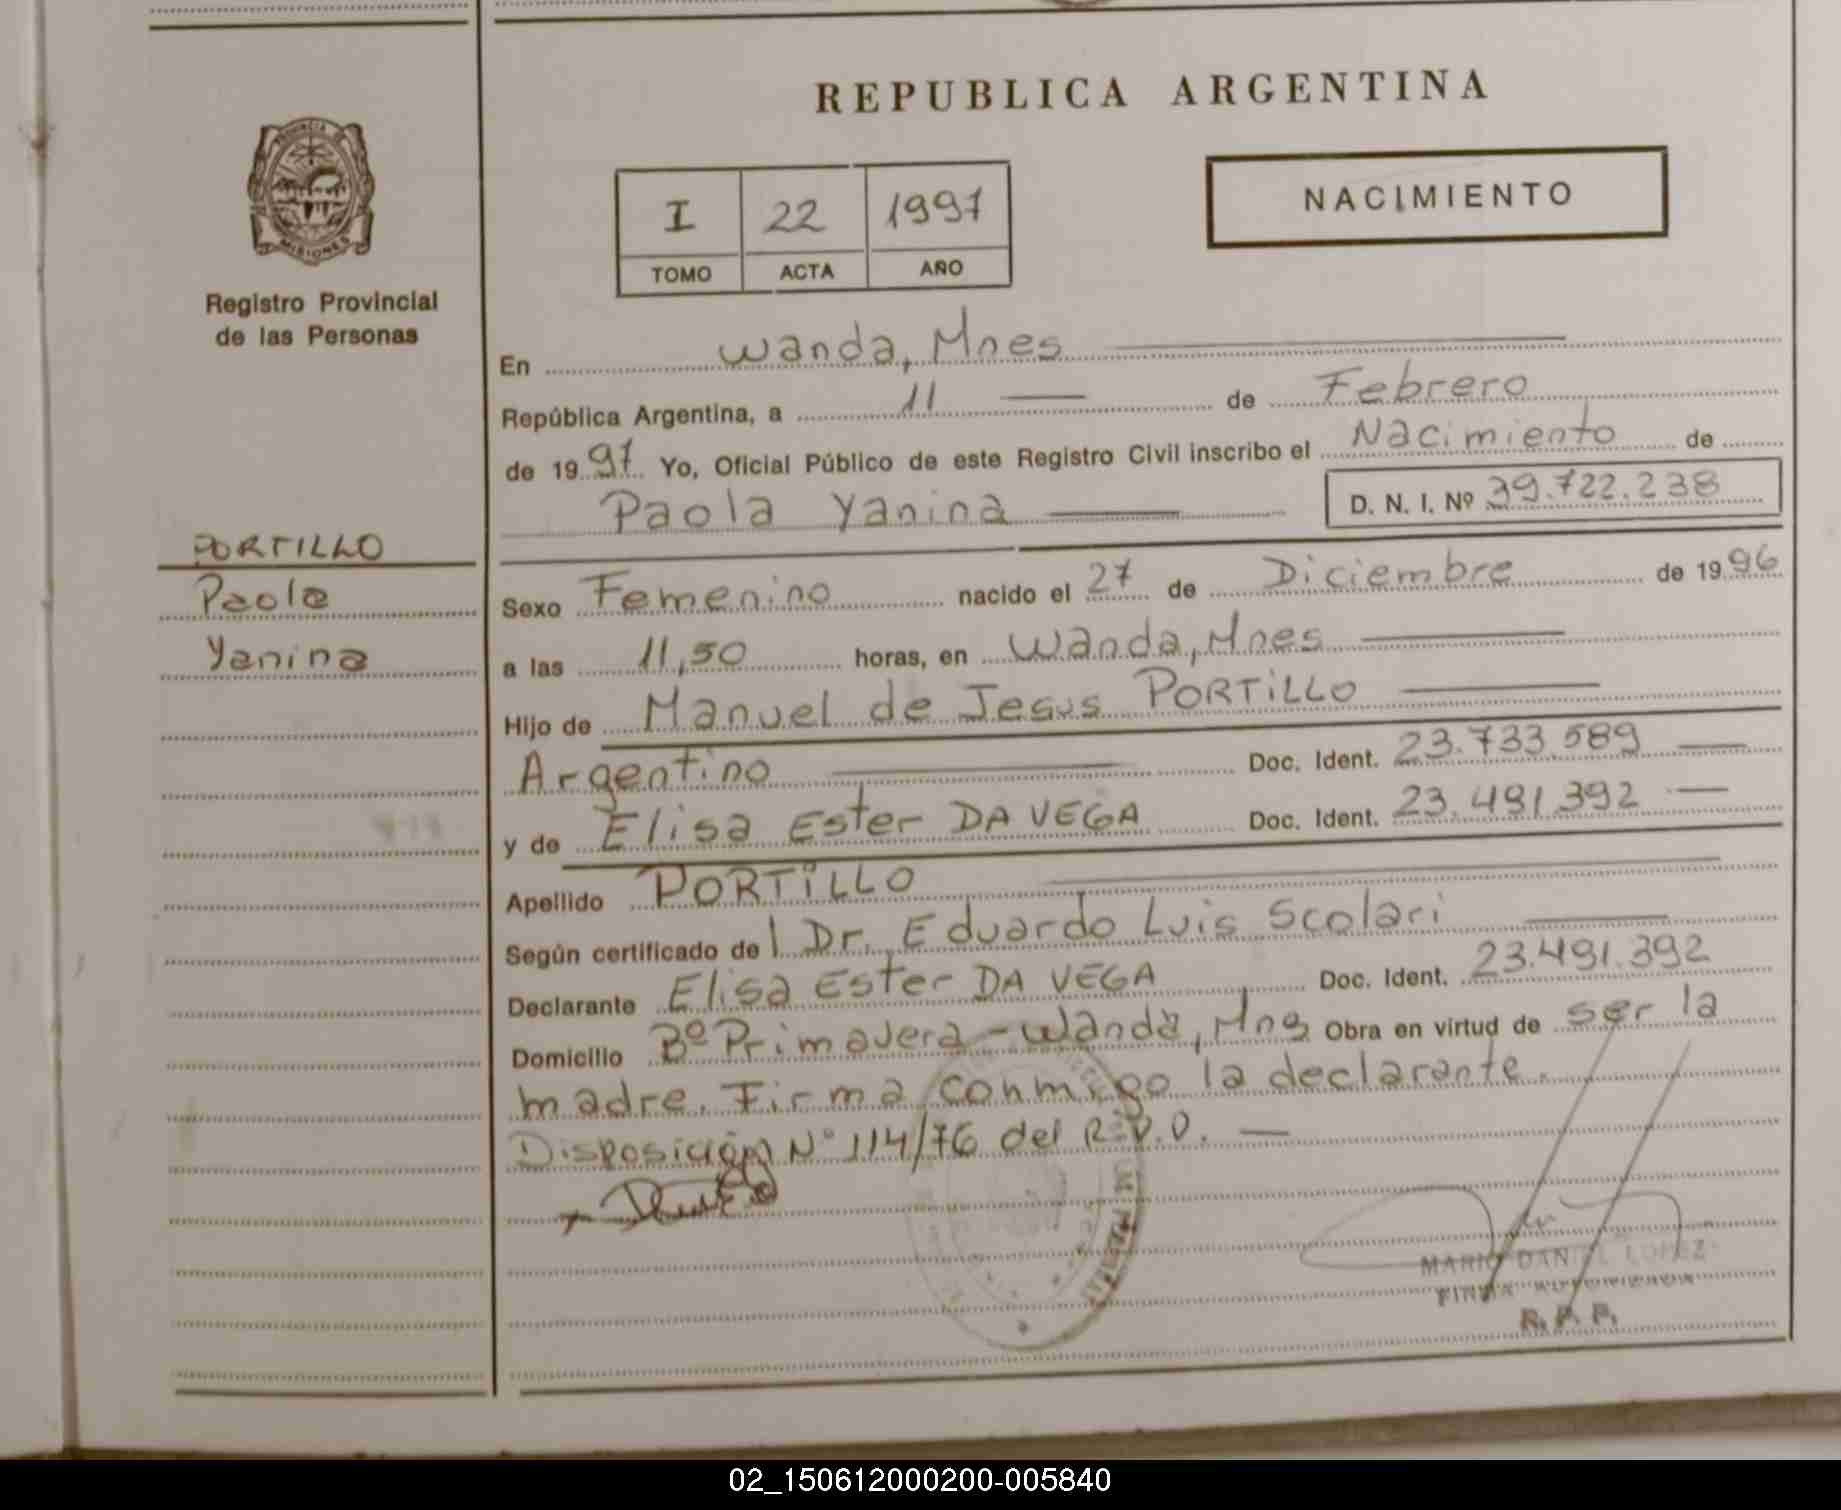 REPUBLICA ARGENTINA
PROVINCIA DE
MISIONES
Registro Provincial
de las Personas
I 22 1997
TOMO ACTA AÑO
NACIMIENTO
En Wanda, Mnes
República Argentina, a 11 de Febrero
de 1997 Yo, Oficial Público de este Registro Civil inscribo el Nacimiento de
Paola Yanina D. N. I. Nº 39.722.238
PORTILLO
Paola
Yanina
Sexo Femenino nacido el 27 de Diciembre de 1996
a las 11,50 horas, en Wanda, Mnes
Hijo de Manuel de Jesus PORTiLLO
Argentino Doc. Ident. 23.733.589
y de Elisa Ester DA VEGA Doc. Ident. 23.491.392
Apellido PORTiLLO
Según certificado del Dr. Eduardo Luis Scolari
Declarante Elisa Ester DA VEGA Doc. Ident. 23.491.392
Domicilio Bº Primavera - Wanda, Mns Obra en virtud de ser la
madre. Firma conmigo la declarante.
Disposición Nº 114/76 del R.P.P.
MARIO DANIEL LOPEZ
FIRMA AUTORIZADA
R. P. P.
02_150612000200-005840